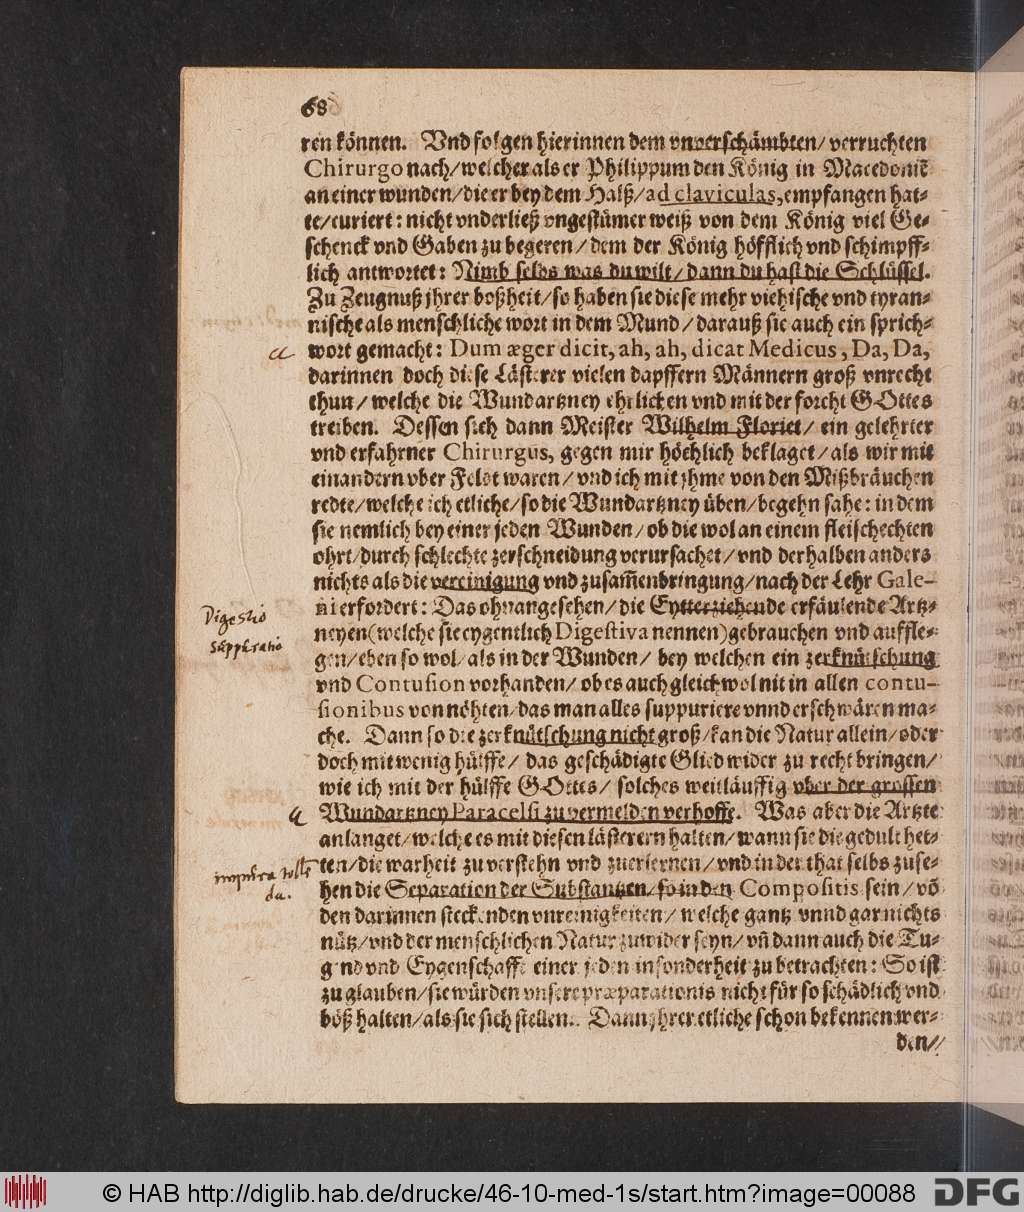 68
ren können. Vnd folgen hierinnen dem vnverschämbten/ verruchten
Chirurgo nach/ welcher als er Philippum den König in Macedoniẽ
an einer wunden/ die er bey dem Halß/ ad claviculas, empfangen hat-
te/ curiert: nicht vnderließ vngestümer weiß von dem König viel Ge-
schenck vnd Gaben zu begeren/ dem der König höfflich vnd schimpff-
lich antwortet: Nimb selbs was du wilt/ dann du hast die Schlüssel.
Zu Zeugnuß jhrer boßheit/ so haben sie diese mehr viehische vnd tyran-
nische als menschliche wort in dem Mund/ darauß sie auch ein sprich-
wort gemacht: Dum æger dicit, ah, ah, dicat Medicus, Da, Da,
darinnen doch diese Lästerer vielen dapffern Männern groß vnrecht
thun/ welche die Wundartzney ehrlichen vnd mit der forcht GOttes
treiben. Dessen sich dann Meister Wilhelm Floriet/ ein gelehrter
vnd erfahrner Chirurgus, gegen mir höchlich beklaget/ als wir mit
einandern vber Feldt waren/ vnd ich mit jhme von den Mißbräuchen
redte/ welche ich etliche/ so die Wundartzney üben/ begehn sahe: in dem
sie nemlich bey einer jeden Wunden/ ob die wol an einem fleischechten
ohrt/ durch schlechte zerschneidung verursachet/ vnd derhalben anders
nichts als die vereinigung vnd zusam̃enbringung/ nach der Lehr Gale-
ni erfordert: Das ohnangesehen/ die Eytterziehende erfäulende Artz-
neyen (welche sie eygentlich Digestiva nennen) gebrauchen vnd auffle-
gen/ eben so wol/ als in der Wunden/ bey welchen ein zerknütschung
vnd Contusion vorhanden/ ob es auch gleichwol nit in allen contu-
sionibus von nöhten/ das man alles suppuriere vnnd erschwären ma-
che. Dann so die zerknütschung nicht groß/ kan die Natur allein/ oder
doch mit wenig hülffe/ das geschädigte Glied wider zu recht bringen/
wie ich mit der hülffe GOttes/ solches weitläuffig vber der grossen
Wundartzney Paracelsi zu vermelden verhoffe. Was aber die Artzte
anlanget/ welche es mit diesen lästerern halten/ wann sie die gedult het-
ten/ die warheit zu verstehn vnd zuerlernen/ vnd in der that selbs zuse-
hen die Separation der Substantzen/ so in den Compositis sein/ võ
den darinnen steckenden vnreinigkeiten/ welche gantz vnnd gar nichts
nütz/ vnd der menschlichen Natur zuwider seyn/ vñ dann auch die Tu-
gend vnd Eygenschafft einer jeden insonderheit zu betrachten: So ist
zu glauben/ sie würden vnsere præparationis nicht für so schädlich vnd
böß halten/ als sie sich stellen. Dann jhrer etliche schon bekennen wer-
den/
Digestio
Suppuratio
impura tollẽ
da.
© HAB http://diglib.hab.de/drucke/46-10-med-1s/start.htm?image=00088
DFG